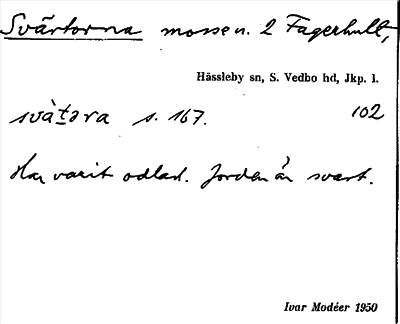 Svärtorna mosse n. 2 Fagerhult,
Hässleby sn, S. Vedbo hd, Jkp. l.
svä̀t̲ǝra s. 167. 102
Har varit odlad. Jorden är svart.
Ivar Modéer 1950